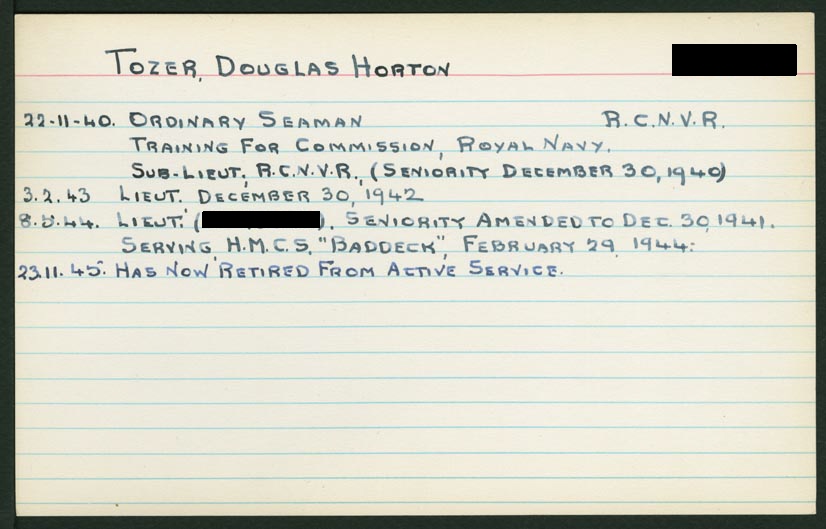 TOZER, DOUGLAS HORTON
22-11-40. ORDINARY SEAMAN R.C.N.V.R.
TRAINING FOR COMMISSION, ROYAL NAVY.
SUB-LIEUT, R.C.N.V.R., (SENIORITY DECEMBER 30, 1940)
3.2.43 LIEUT. DECEMBER 30, 1942
8.5.44. LIEUT. ( ), SENIORITY AMENDED TO DEC. 30, 1941.
SERVING, H.M.C.S. "BADDECK", FEBRUARY 29, 1944.
23.11.45. HAS NOW RETIRED FROM ACTIVE SERVICE.